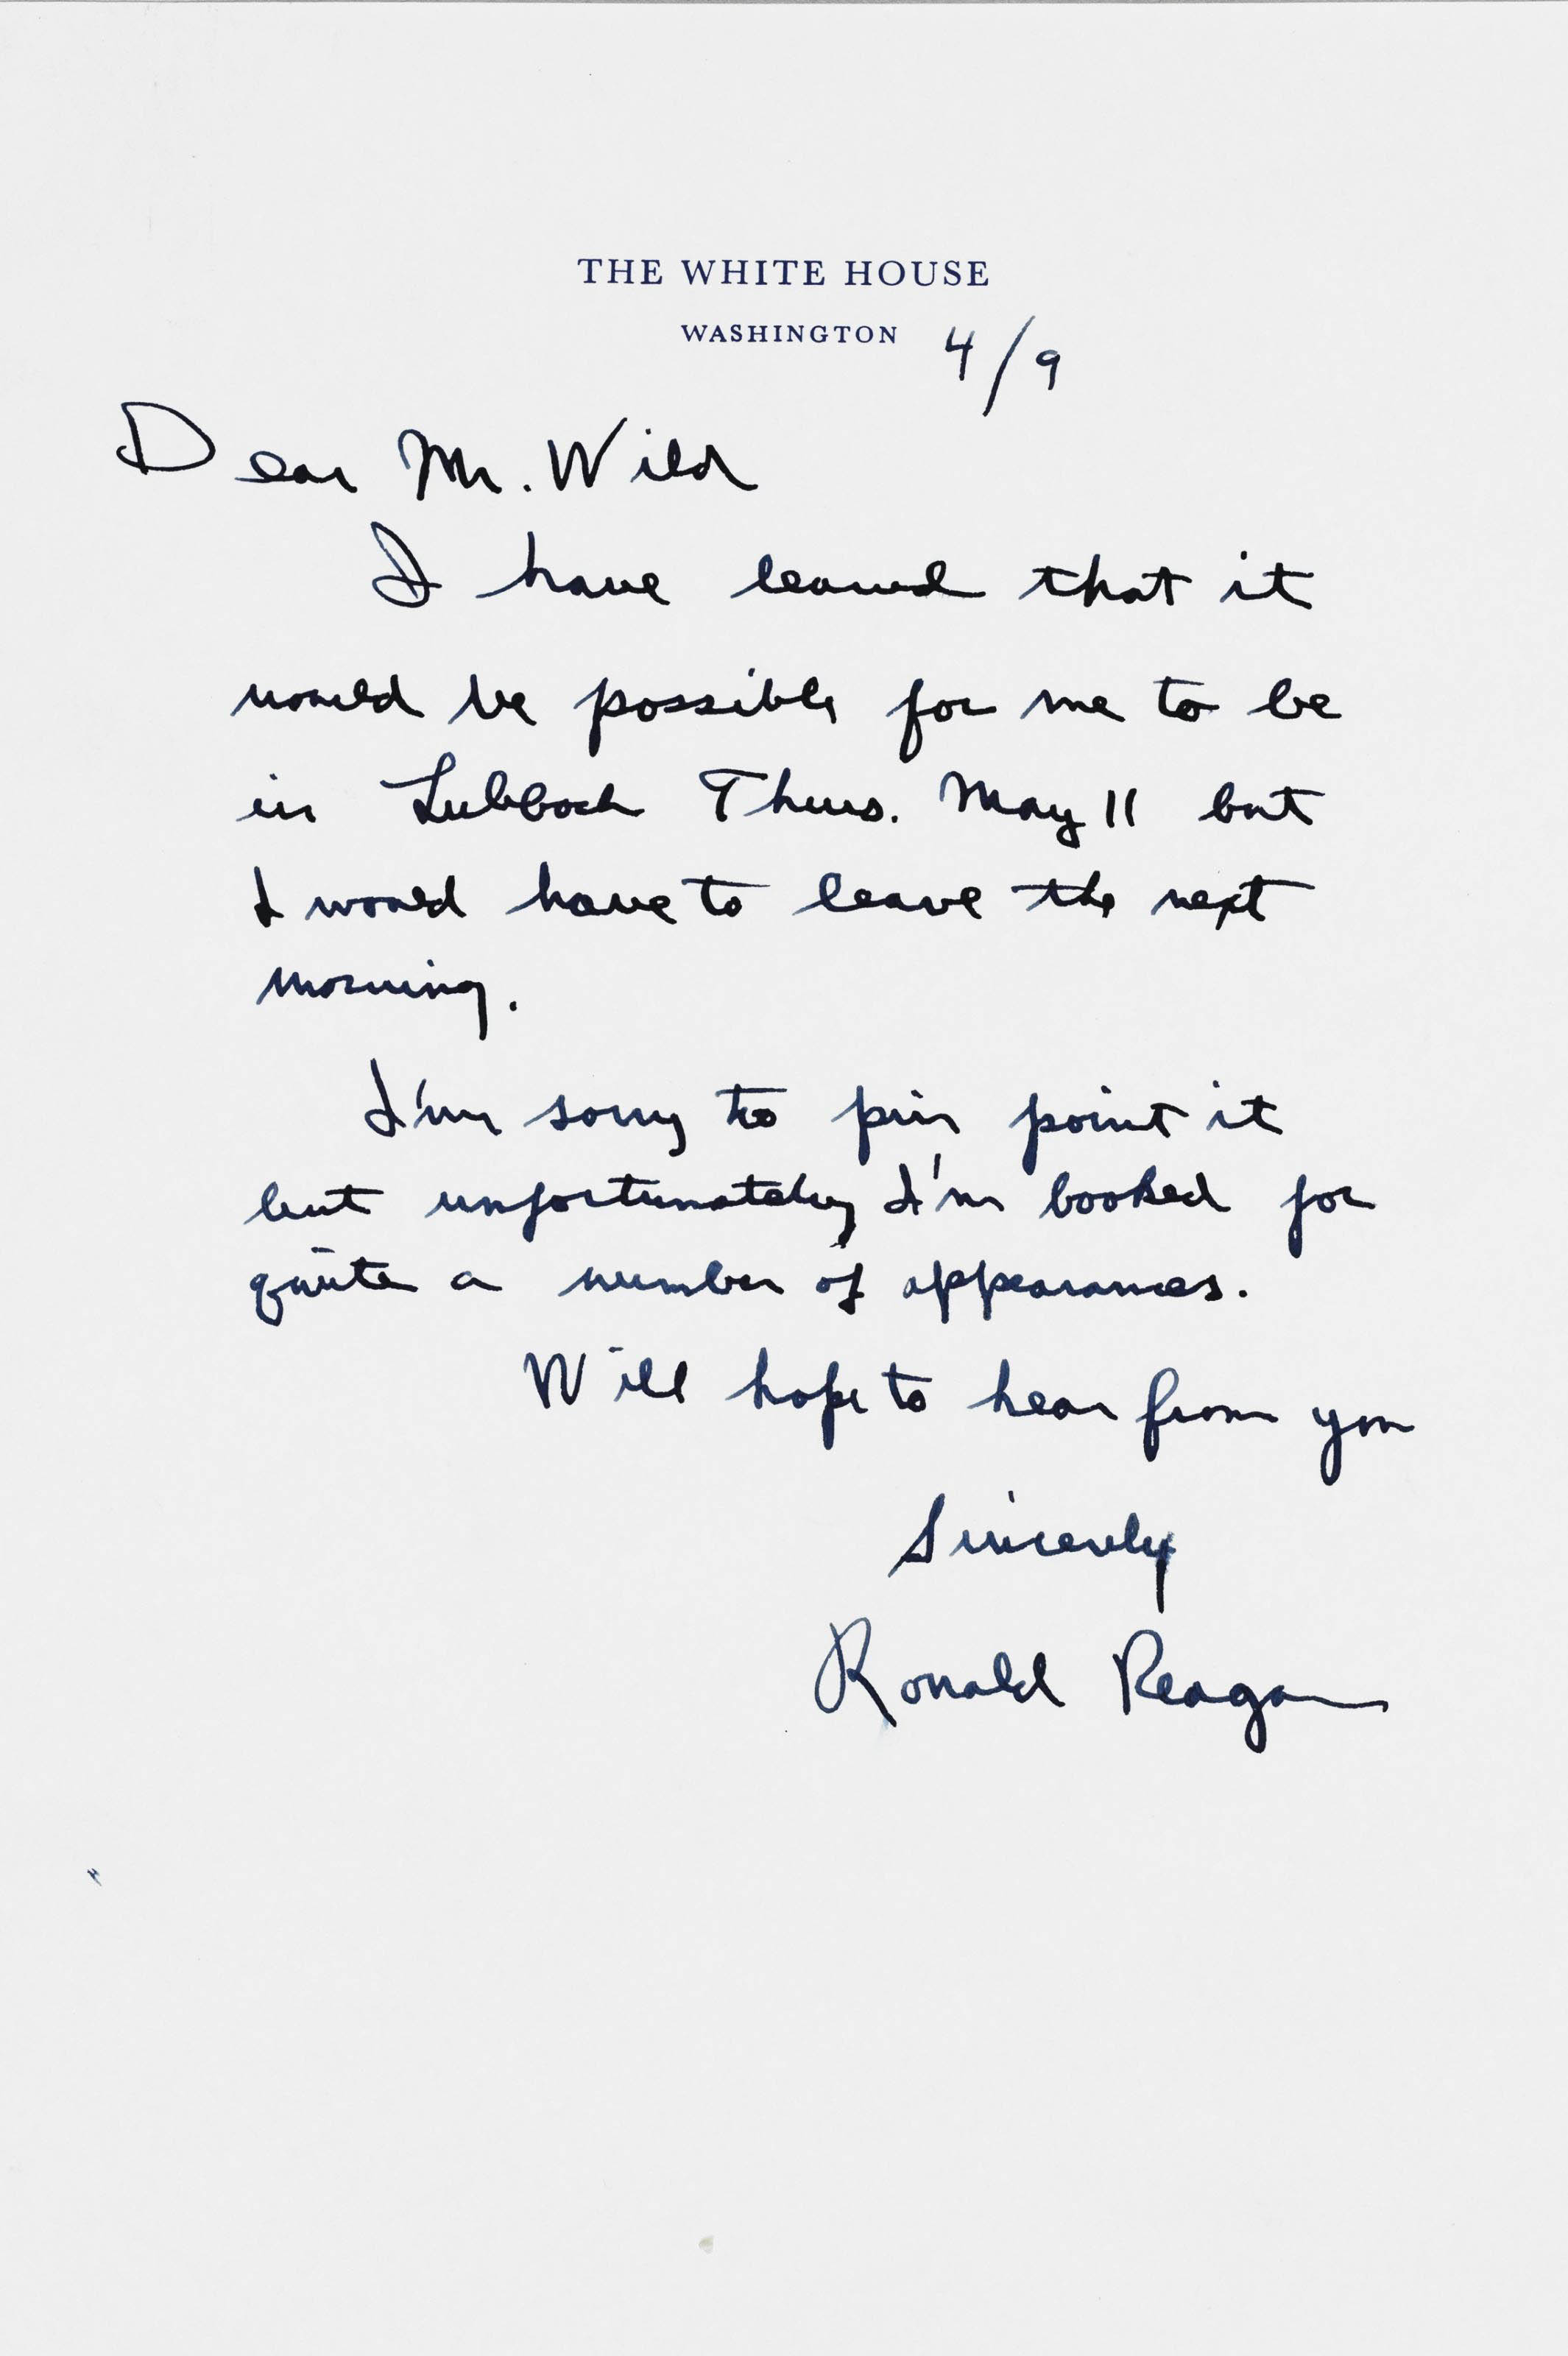 THE WHITE HOUSE
WASHINGTON 4/9
Dear Mr. Wild
I have learned that it
would be possible for me to be
in Lubbock Thurs. May 11 but
I would have to leave the next
morning.
I'm sorry to pin point it
but unfortunately I'm booked for
quite a number of appearances.
Will hope to hear from you
Sincerely
Ronald Reagan